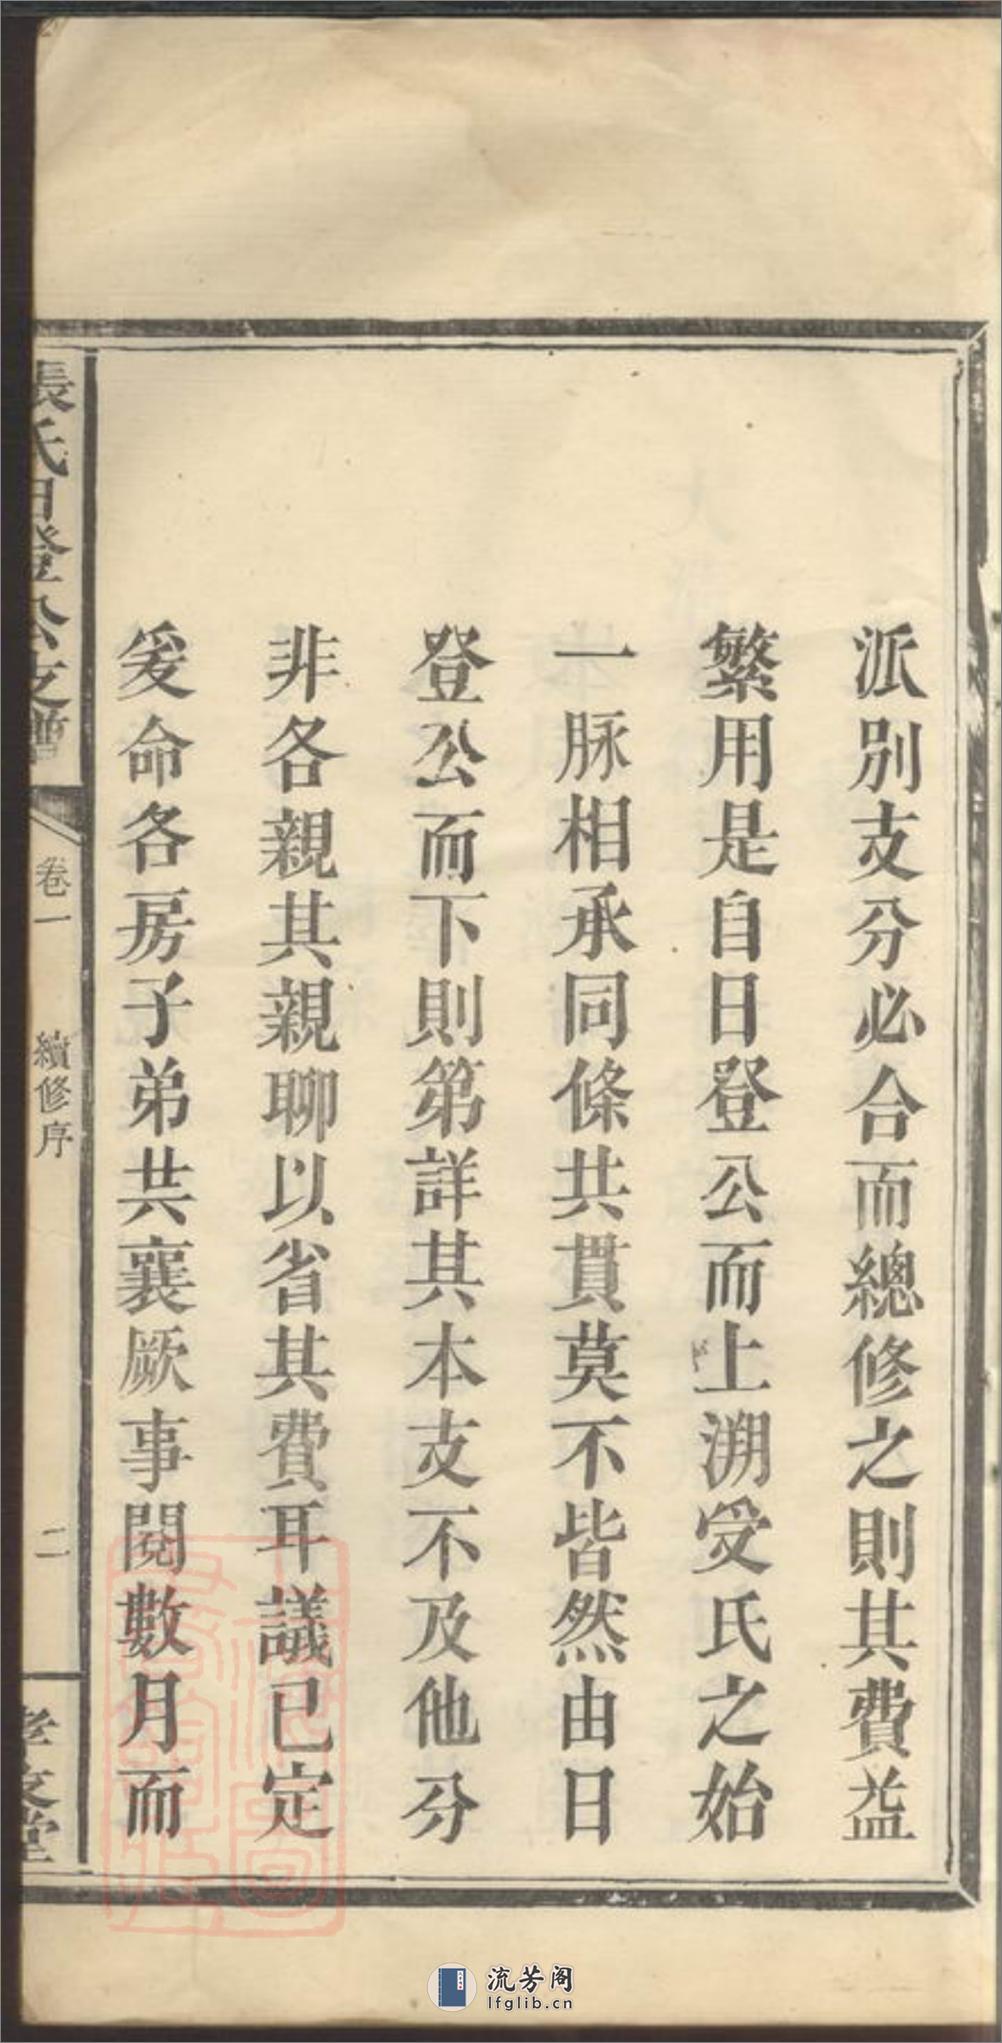 派別支分必合而總修之則其費益
繁用是自日登公而上溯受氏之始
一脉相承同條共貫莫不皆然由日
登公而下則第詳其本支不及他分
非各親其親聊以省其費耳議已定
爰命各房子弟共襄厥事閱數月而
張氏日登公支譜
卷一
續修序
二
孝友堂
流芳阁
lfglib.cn